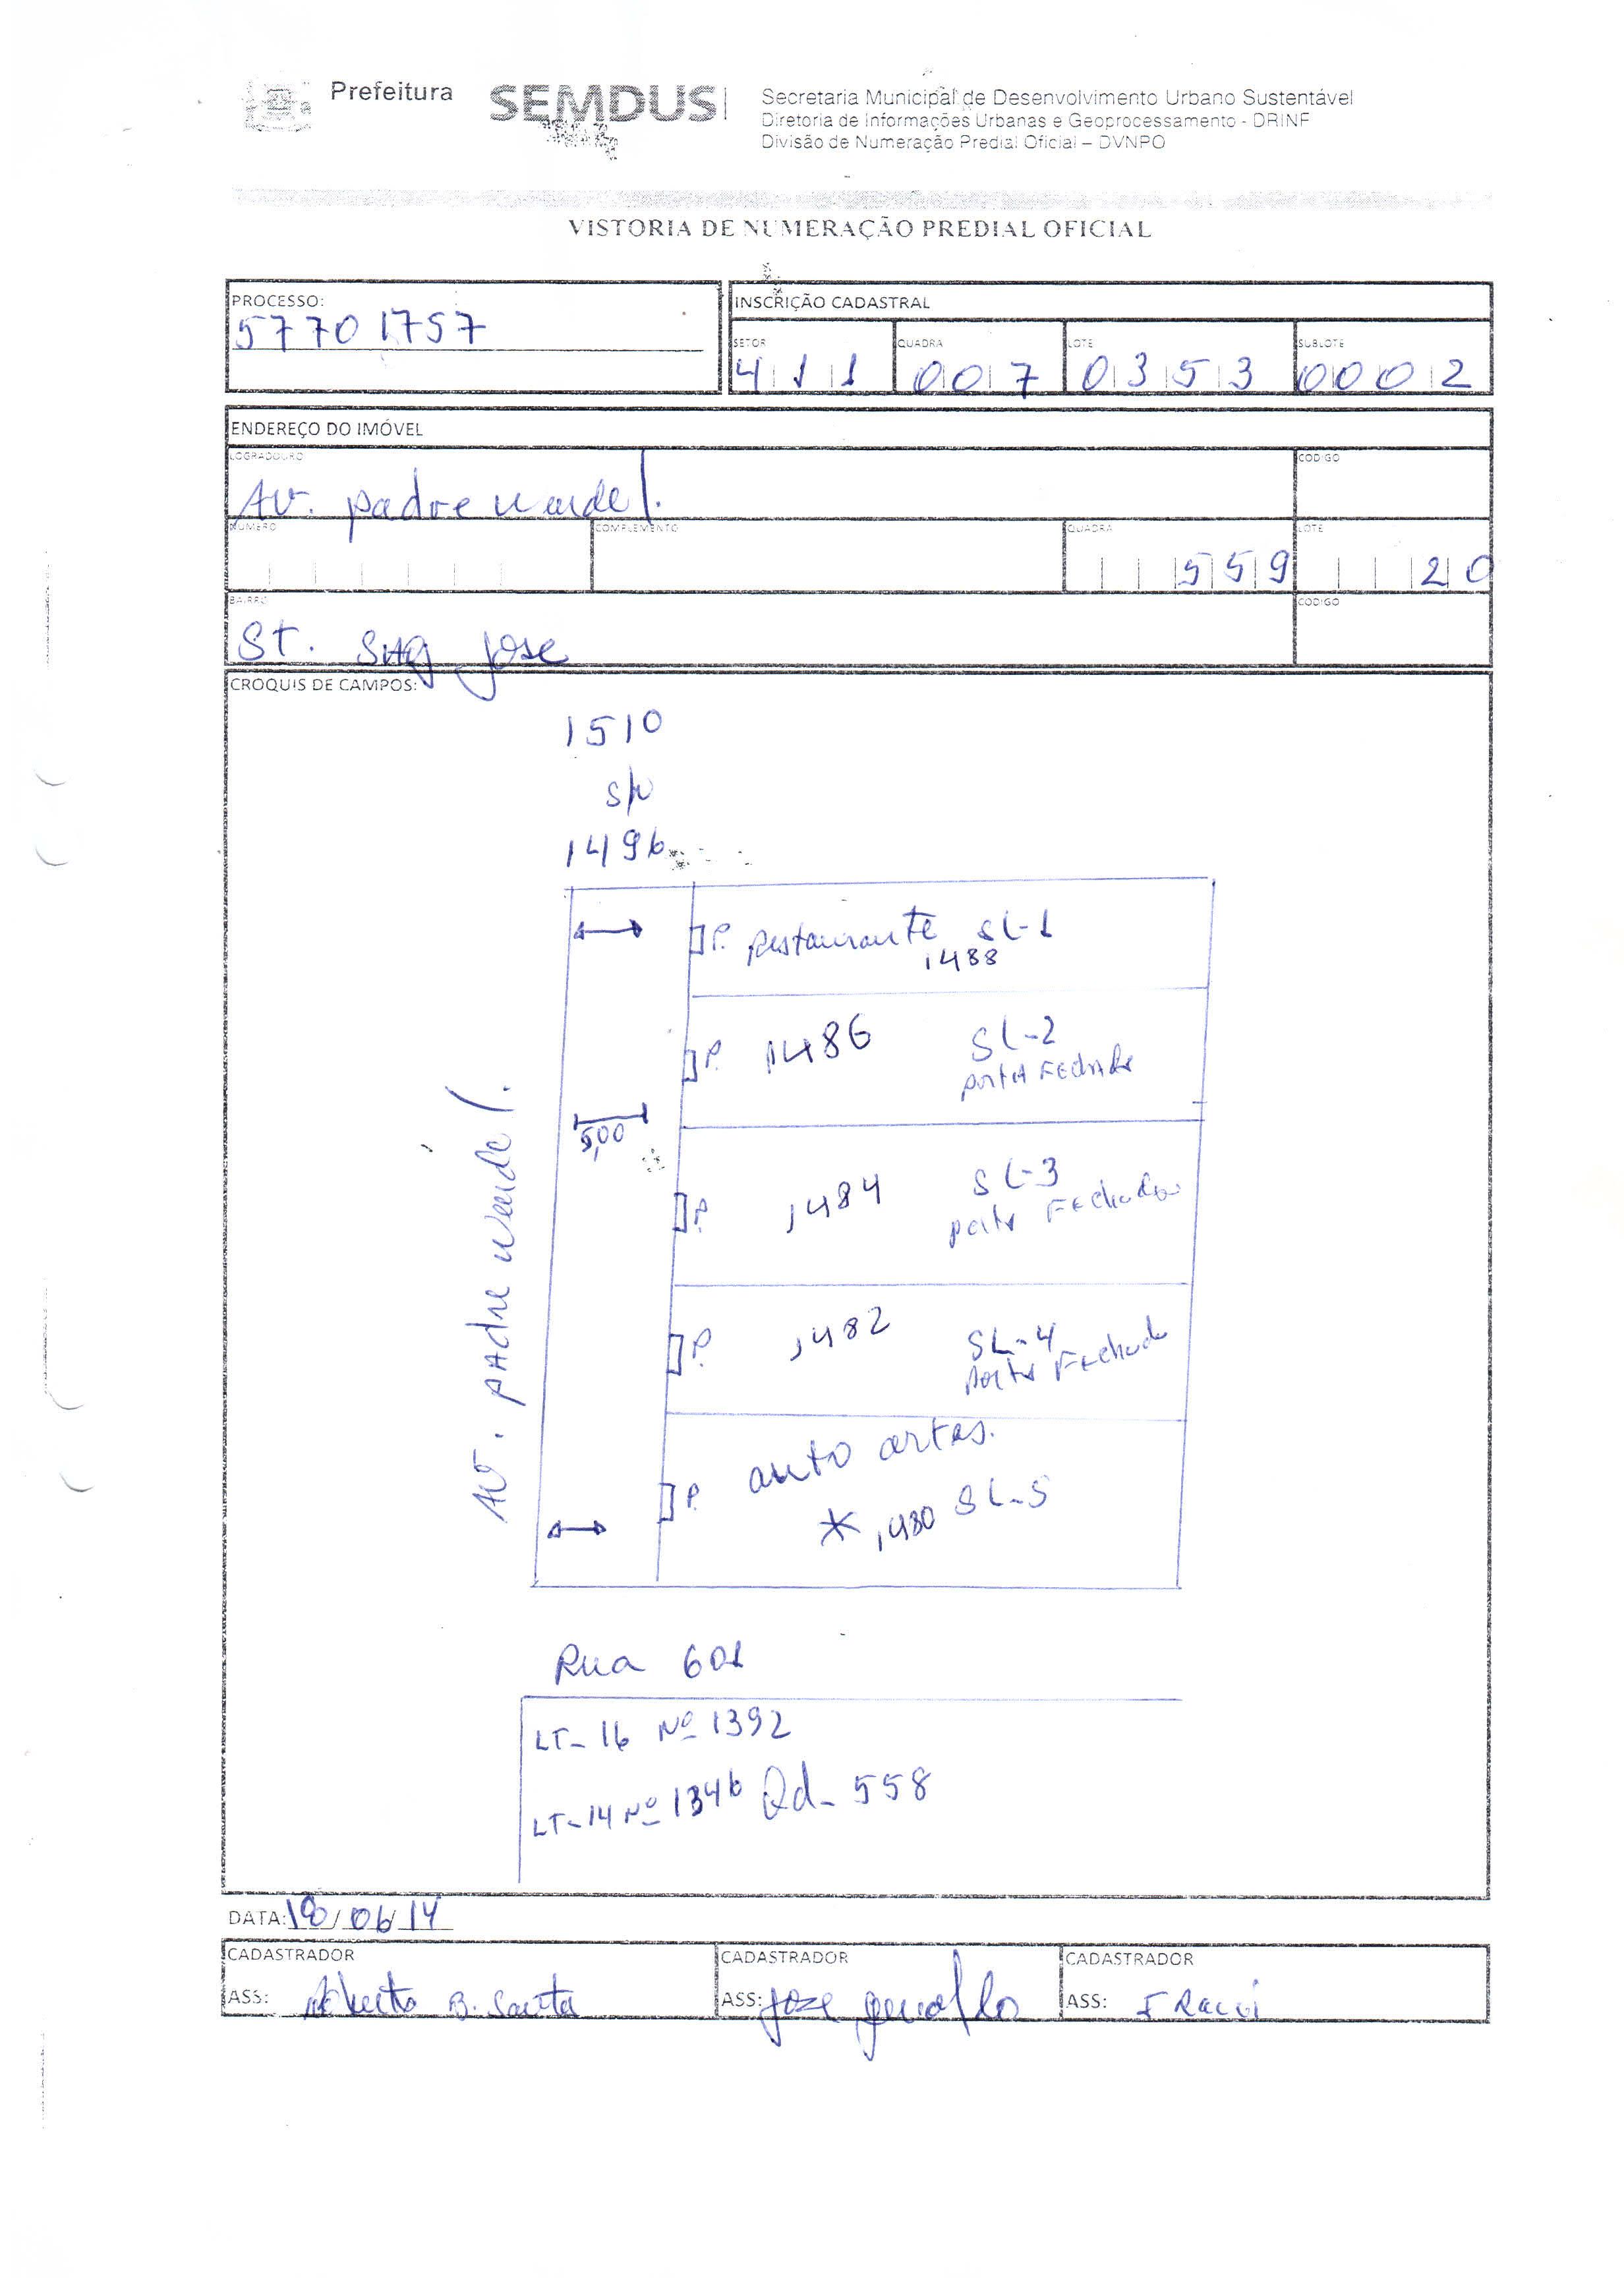 Prefeitura
SEMDUS
Secretaria Municipal de Desenvolvimento Urbano Sustentável
Diretoria de Informações Urbanas e Geoprocessamento - DRINF
Divisão de Numeração Predial Oficial – DVNPO
VISTORIA DE NUMERAÇÃO PREDIAL OFICIAL
PROCESSO:
57701757
INSCRIÇÃO CADASTRAL
SETOR QUADRA LOTE SUBLOTE
411 007 0353 0002
ENDEREÇO DO IMÓVEL
LOGRADOURO CODIGO
AV. padre
NUMERO COMPLEMENTO QUADRA LOTE
559 20
BAIRRO CODIGO
ST. Jose
CROQUIS DE CAMPOS:
1510
S/N
1496
P. Restaurante SL-1
1488
P. 1486 SL-2
porta Fechada
5,00
P. 1484 SL-3
porta Fechada
P. 1482 SL-4
porta Fechada
auto artes.
P. * 1480 SL-5
AV. padre
Rua 601
LT-16 Nº 1392
LT-14 Nº 1346 Qd- 558
DATA: /06/14
CADASTRADOR CADASTRADOR CADASTRADOR
ASS: B. ASS: Jose ASS: